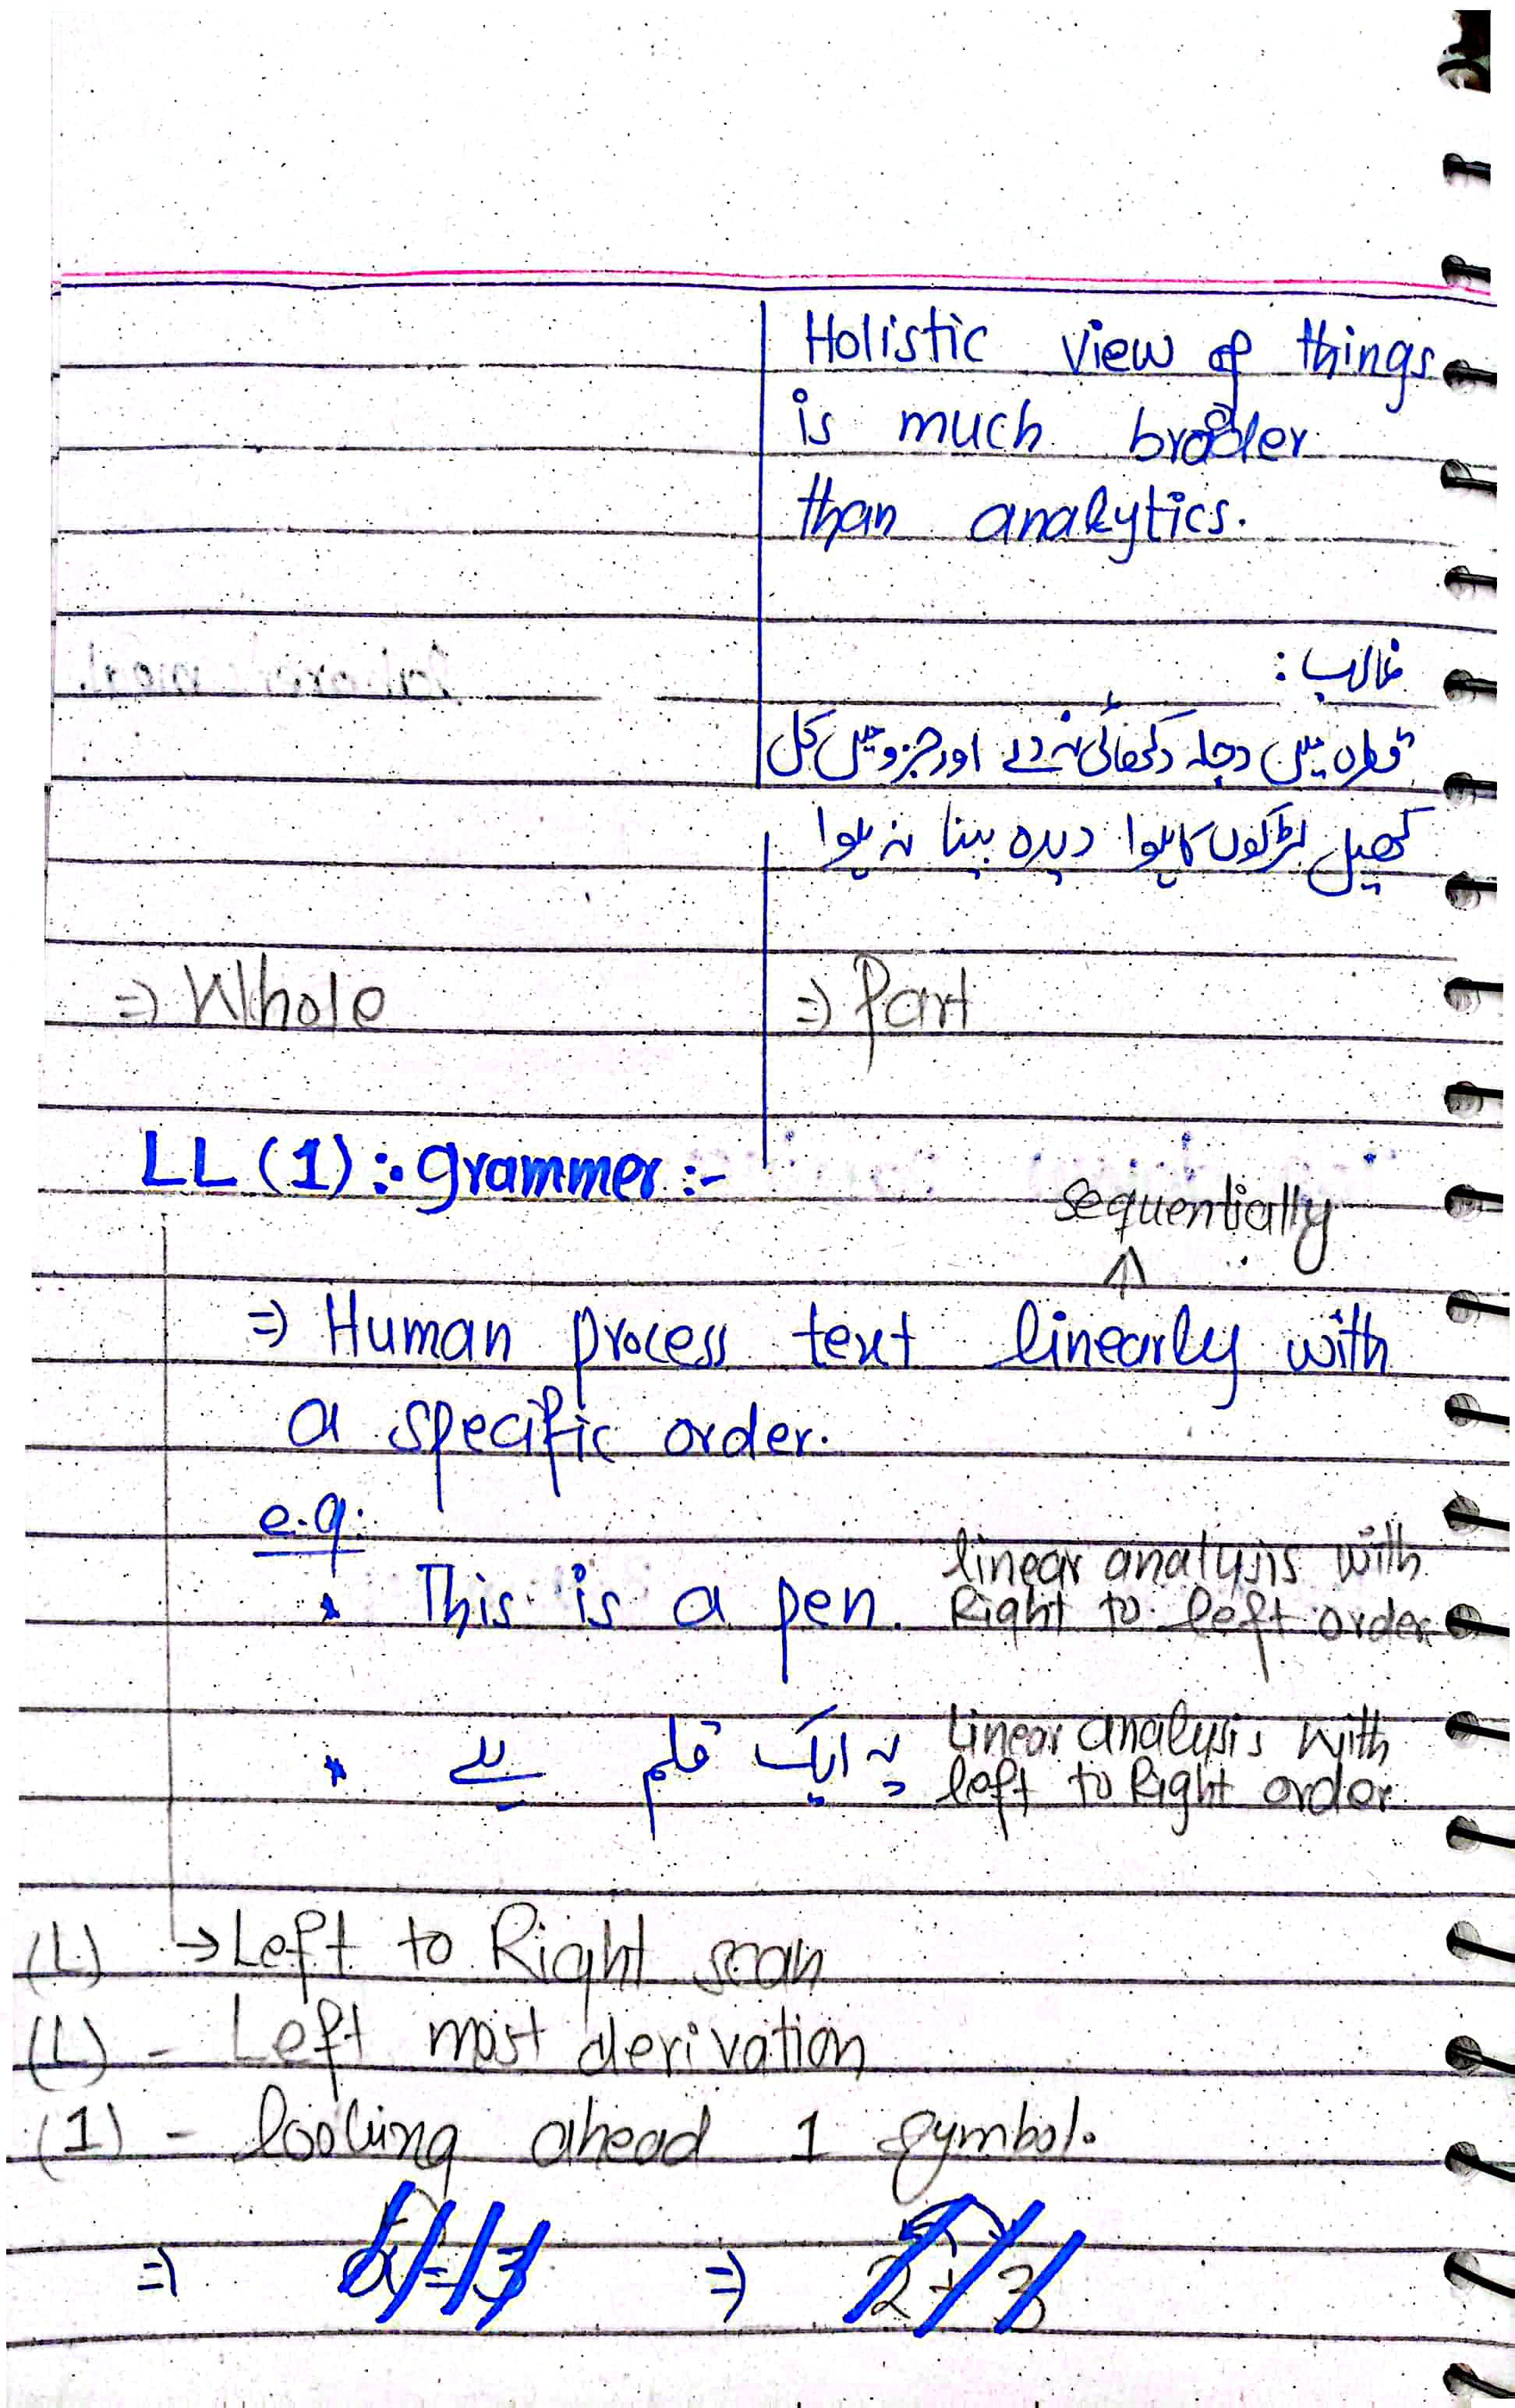 Holistic view of things
is much broader
than analytics.
غالب :
قطرہ میں دجلہ دکھائی نہ دے اور جزو میں کل
کھیل لڑکوں کا ہوا دیدہ بینا نہ ہوا
⇒ Whole
⇒ Part
LL (1) :. grammer :-
sequentially
⇒ Human process text linearly with
a specific order.
e.g:
* This is a pen. linear analysis with
Right to left order
* یہ ایک قلم ہے linear analysis with
left to Right order
(L) → Left to Right scan
(L) - Left most derivation
(1) - looking ahead 1 symbol.
⇒ ⇒ 2 + 3